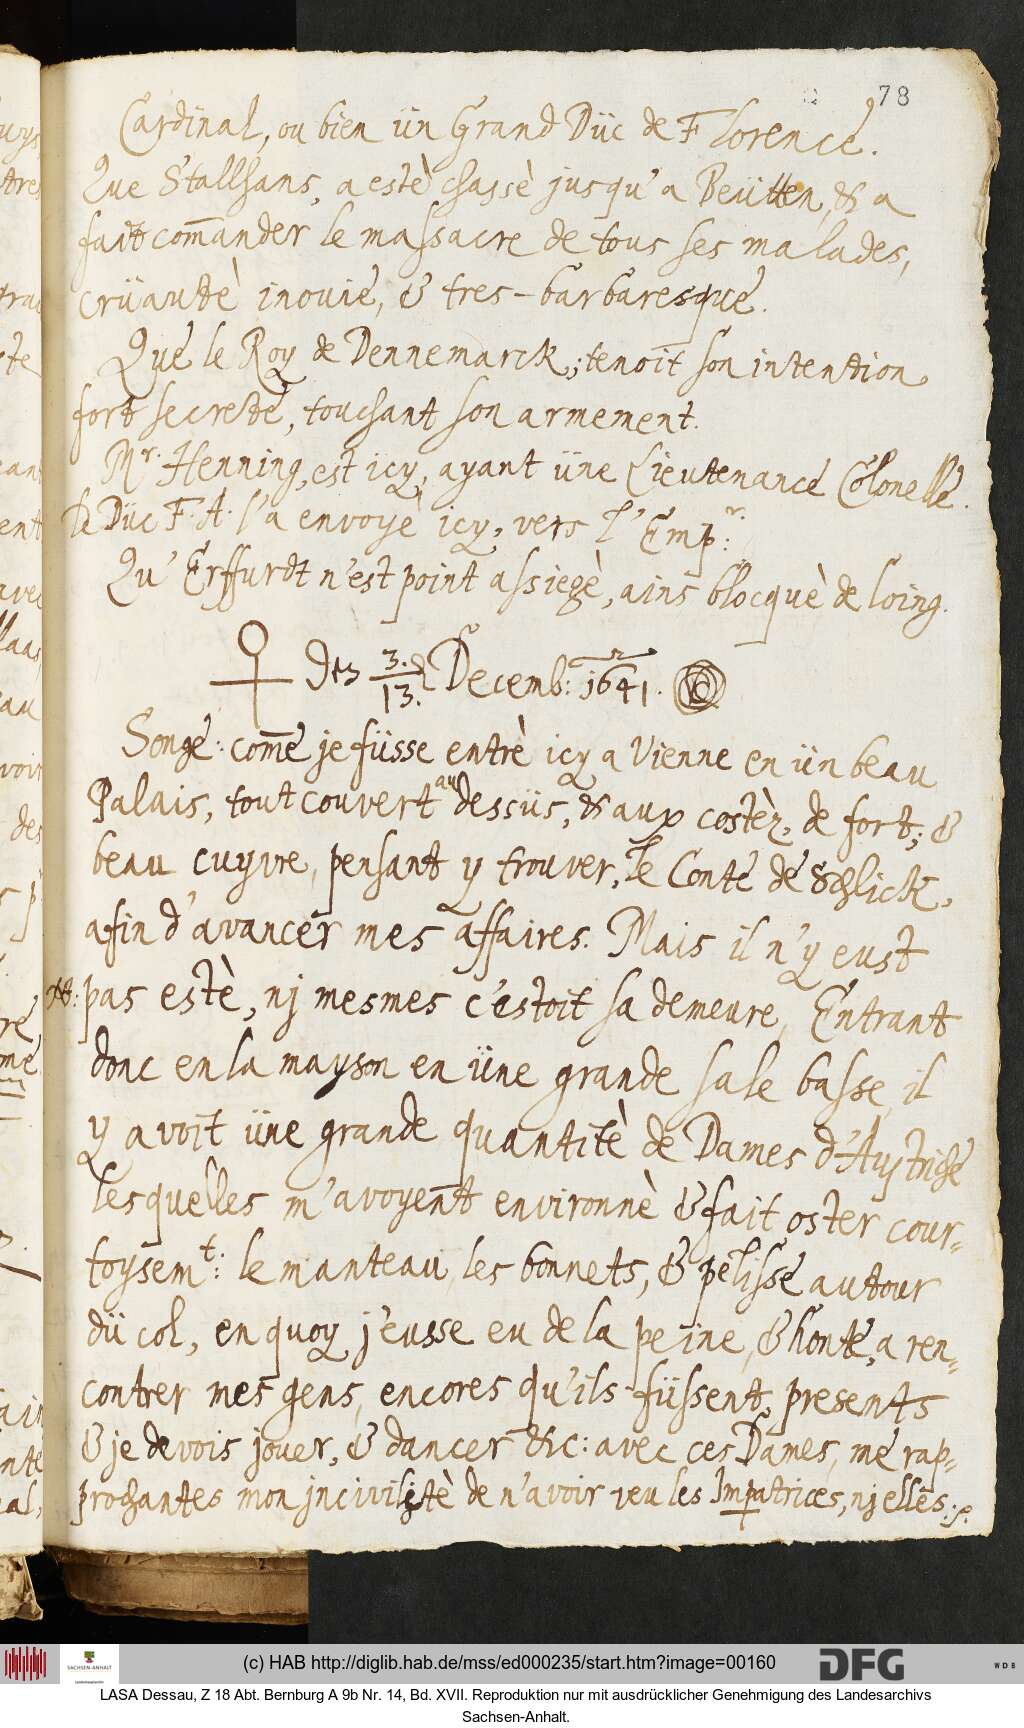 78
Cardinal, ou bien ün Grand Düc de Florence.
Que Stallhans, a estè chassè jusqu'a Beütten, & a
fait com̄ander le massacre de tous ses malades,
crüautè inouie, & tres-barbaresque.
Que le Roy de Dennemarck, tenoit son intention
fort secrete, touchant son armement.
Mr. Henning, est icy, ayant üne Lieutenance Colonelle.
le Düc F. A. l'a envoyè icy, vers l'Emp:r.
Qu'Erffurdt n'est point assiegè, ains blocquè de loing.
♀ den 3./13. Decemb: 1641.
Songe: com̄e je füsse entrè icy a Vienne en ün beau
Palais, tout couvert au dessüs, & aux costèz, de fort, &
beau cuyvre, pensant y trouver, le Conte de Schlick,
afin d'avancer mes affaires. Mais il n'y eust
pas estè, nj mesmes c'estoit sa demeure, Entrant
donc en la mayson en üne grande sale basse, il
y avoit üne grande quantitè de Dames d'Austriche
lesquelles m'avoyent environnè & fait oster cour-
toysem:t le manteau, les bonnets, & pelisse autour
dü col, en quoy j'eusse eu de la peine, & honte, a ren-
contrer mes gens, encores qu'ils füssent, presents
& je devois jouer, & dancer &c: avec ces Dames, me rap-
prochantes mon jncivilitè de n'avoir veu les Jmpatrices, nj elles:
(c) HAB http://diglib.hab.de/mss/ed000235/start.htm?image=00160
SACHSEN-ANHALT
DFG
WDB
LASA Dessau, Z 18 Abt. Bernburg A 9b Nr. 14, Bd. XVII. Reproduktion nur mit ausdrücklicher Genehmigung des Landesarchivs
Sachsen-Anhalt.